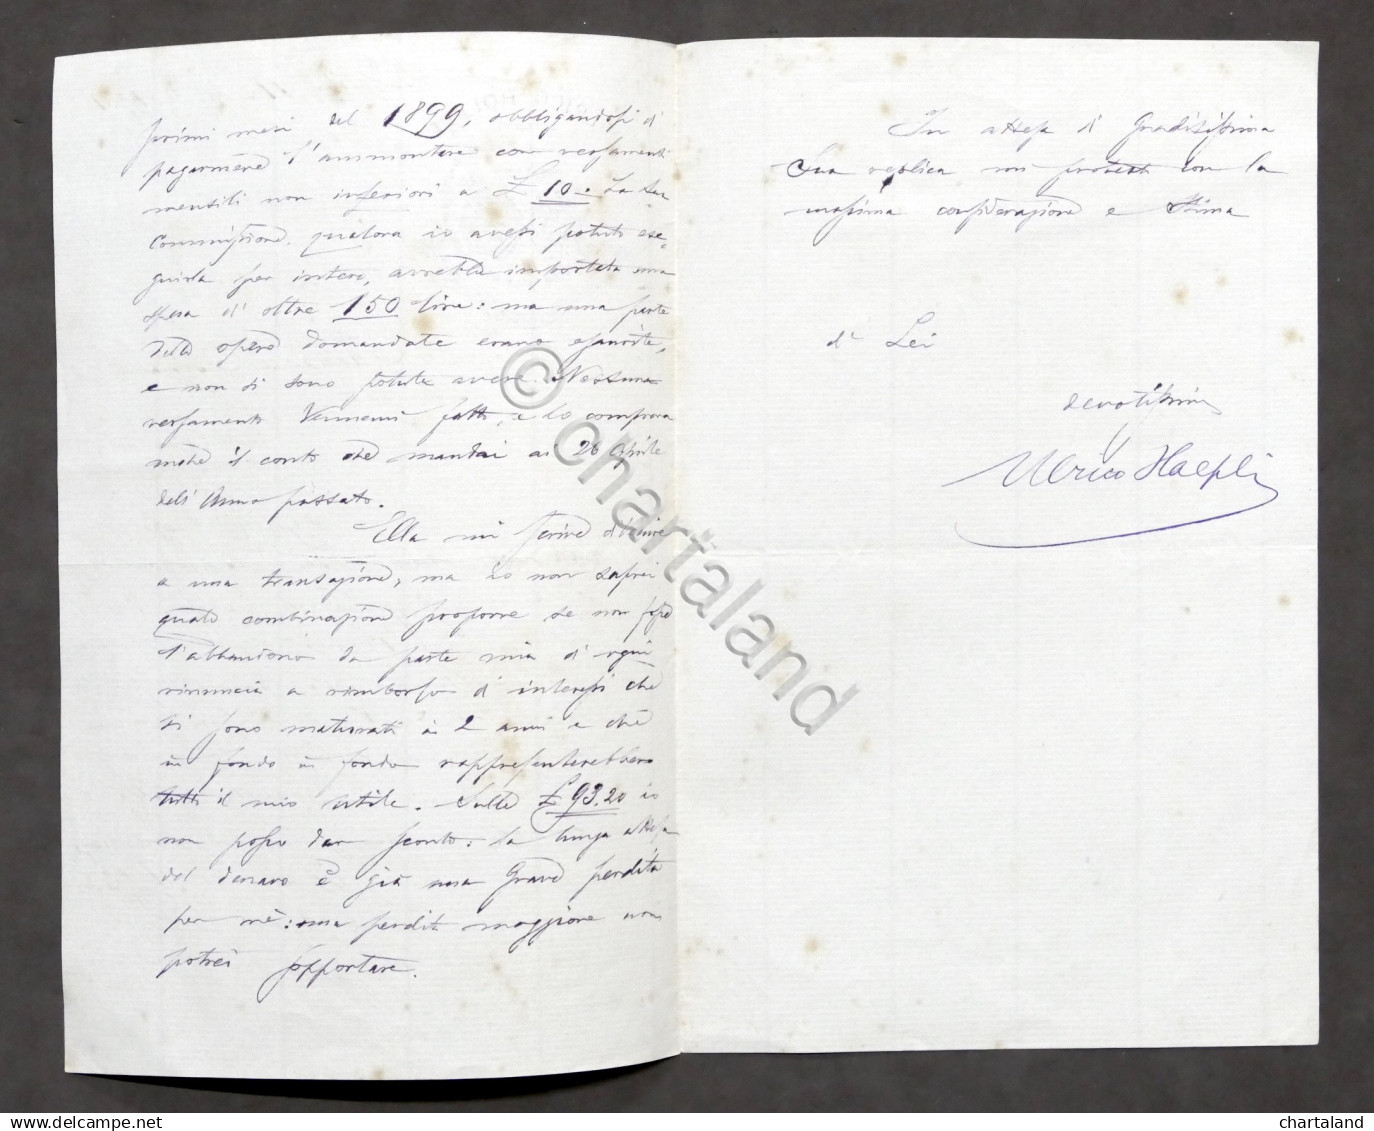 primi mesi del 1899, obbligandosi di
pagarmene l'ammontare con versamenti
mensili non inferiori a £ 10.= La sua
Commissione, qualora io avessi potuto ese=
guirla per intero, avrebbe importato una
spesa di oltre 150 lire: ma una parte
delle opere domandate erano esaurite,
e non si sono potute avere. Nessun
versamento venne fatto, e lo comprova
anche il conto che mandai ai 26 Aprile
dell'Anno passato.
Ella mi scrive di venire
a una transazione, ma io non saprei
quale combinazione proporre se non fosse
l'abbandono da parte mia di ogni
rinuncia a rimborso di interessi che
si sono maturati in 2 anni e che
in fondo in fondo rappresenterebbero
tutti il mio utile. Sulle £ 93.20 io
non posso dar sconto: la lunga attesa
del denaro è già una grave perdita
per me: una perdita maggiore non
potrei sopportare.
In attesa di graditissima
Sua replica mi protesto con la
massima considerazione e stima
di Lei
devotissimo
Ulrico Hoepli
© chartaland
chartaland